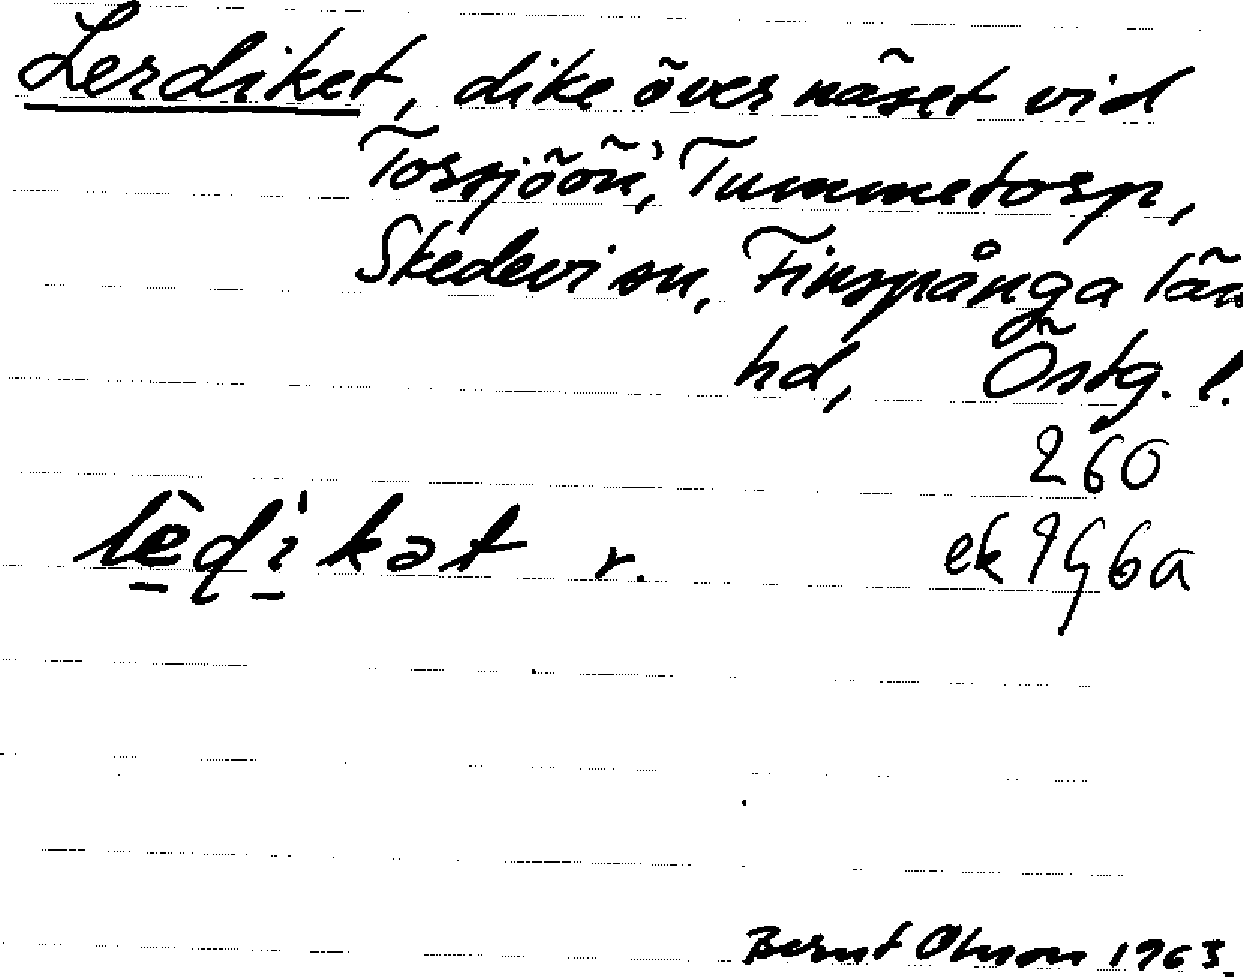 Lerdiket, dike över näset vid
Torsjöön, Tummetorp,
Skedevi sn, Finspånga län
hd, Östg. l.
260
lèdikət r. ek 1y6a
Bernt Olsson 1963.